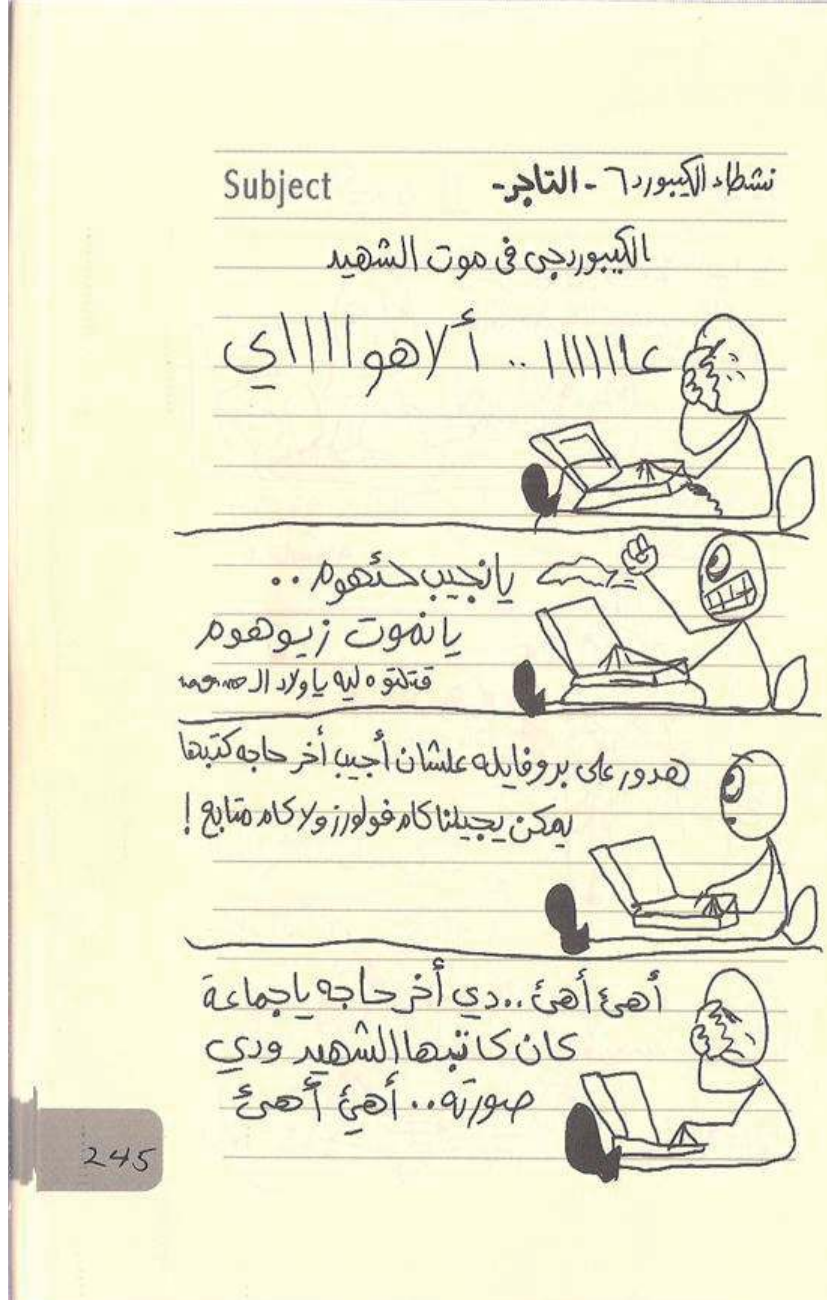 Subject
نشطاء الكيبورد ٦ - التاجر-
الكيبوردجى فى موت الشهيد
عااااااا .. ألاهوااااي
يانجيب حئهوم ..
يا نموت زيوهوم
قتلتوه ليه يا ولاد ال
هدور على بروفايله علشان أجيب أخر حاجه كتبها
يمكن يجيلنا كام فولورز ولا كام متابع !
أهئ أهئ ..دي أخر حاجه ياجماعة
كان كاتبها الشهيد ودي
صورته.. أهئ أهئ
245